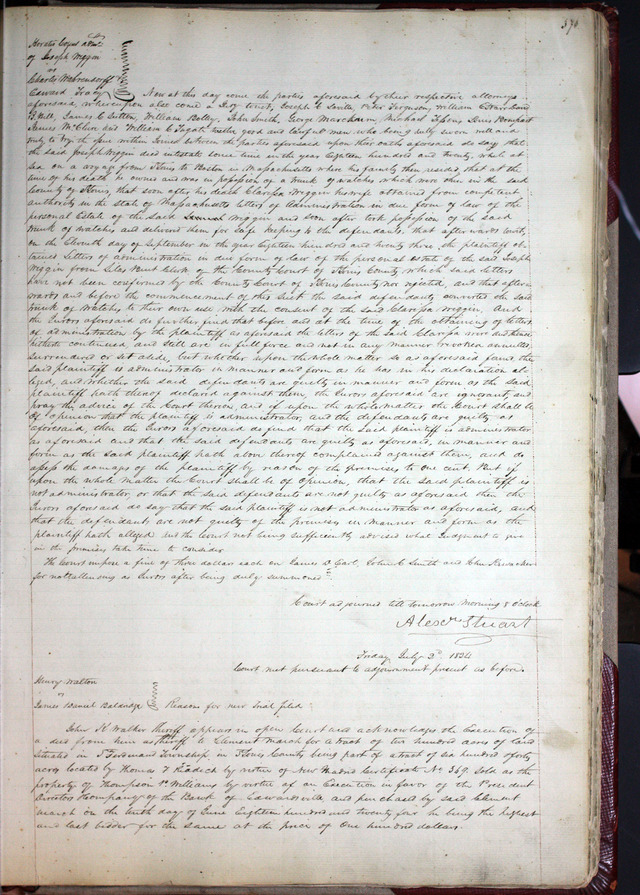 370
Horatio Cozens adm.
of Joseph Wiggin
vs
Charles Wahrendorff &
Edward Tracy
Now at this day come the parties aforesaid by their respective attorneys
aforesaid, whereupon also come a Jury to wit, Joseph C Peter Ferguson, William
James C Sutton, William Bolley, John Smith, George Michael
James McClure and William C twelve good and lawful men who being duly sworn well and
truly to try the issue within joined between the parties aforesaid upon their oaths aforesaid do say that
the said Joseph Wiggin died intestate some time in the year Eighteen hundred and twenty, while at
sea on a voyage from to Boston in Massachusetts where his family then resided, that at the
time of his death he owned and was in possession of a trunk of watches which were then in the said
County of St Louis, that soon after his death Clarissa Wiggin his wife obtained from competent
authority in the state of Massachusetts letters of Administration in due form of law of the
personal Estate of the said Wiggin and soon after took possession of the said
trunk of watches and delivered them for safe keeping to the defendants. that afterwards to wit,
on the Eleventh day of September in the year Eighteen hundred and twenty three, the plaintiff ob-
tained letters of administration in due form of law of the personal estate of the said Joseph
Wiggin from Silas Bent Clerk of the County Court of St Louis County, which said letters
have not been confirmed by the County Court of St Louis County nor rejected, and that after-
wards and before the commencement of this suit the said defendants converted the said
trunk of watches to their own use with the consent of the said Clarissa Wiggin. And
the Jurors aforesaid do further find that before and at the time of the obtaining of letters
of administration by the plaintiff as aforesaid the letters of the said Clarissa were and have
hitherto continued and still are in full force and not in any manner revoked annulled
surrendered or set aside, but whether upon the whole matter so as aforesaid found the
said plaintiff is administrator in manner and form as he has in his declaration al-
leged, and whether the said defendants are guilty in manner and form as the said
plaintiff hath thereof declared against them, the Jurors aforesaid are ignorant and
pray the advice of the Court thereon, and if upon the whole matter the Court shall be
of opinion that the plaintiff is administrator, and the defendants are guilty as
aforesaid, then the Jurors aforesaid do find that the said plaintiff is administrator
as aforesaid and that the said defendants are guilty as aforesaid, in manner and
form as the said plaintiff hath above thereof complained against them, and do
assess the damages of the plaintiff by reason of the premises to one cent. But if
upon the whole matter the Court shall be of opinion, that the said plaintiff is
not administrator, or that the said defendants are not guilty as aforesaid then the
Jurors aforesaid do say that the said plaintiff is not administrator as aforesaid, and
that the defendants are not guilty of the premises in manner and form as the
plaintiff hath alleged. and the Court not being sufficiently advised what Judgment to give
in the premises take time to consider
The Court impose a fine of three dollars each on James D Earl, John C Smith and John
for not attending as Jurors after being duly summoned
Court adjourned till tomorrow morning 8 oClock
Alexr Stuart
Friday July 2d 1824
Court met pursuant to adjournment present as before.
Henry Walton
vs
James Bemul Baldridge
Reasons for new trial filed
John K Walker Sheriff appears in open Court and acknowledges the Execution of
a deed from him as Sheriff to Clement March for a tract of ten hundred acres of land
situated in St Ferdinand Township in St Louis County being part of a tract of six hundred & forty
acres located by Thomas F Riddick by virtue of New Madrid Certificate No 369. Sold as the
property of Thompson & Williams by virtue of an Execution in favor of the President
Directors & company of the Bank of Edwardsville and purchased by said Clement
March on the tenth day of June Eighteen hundred and twenty four he being the highest
and last bidder for the same at the price of One hundred dollars.